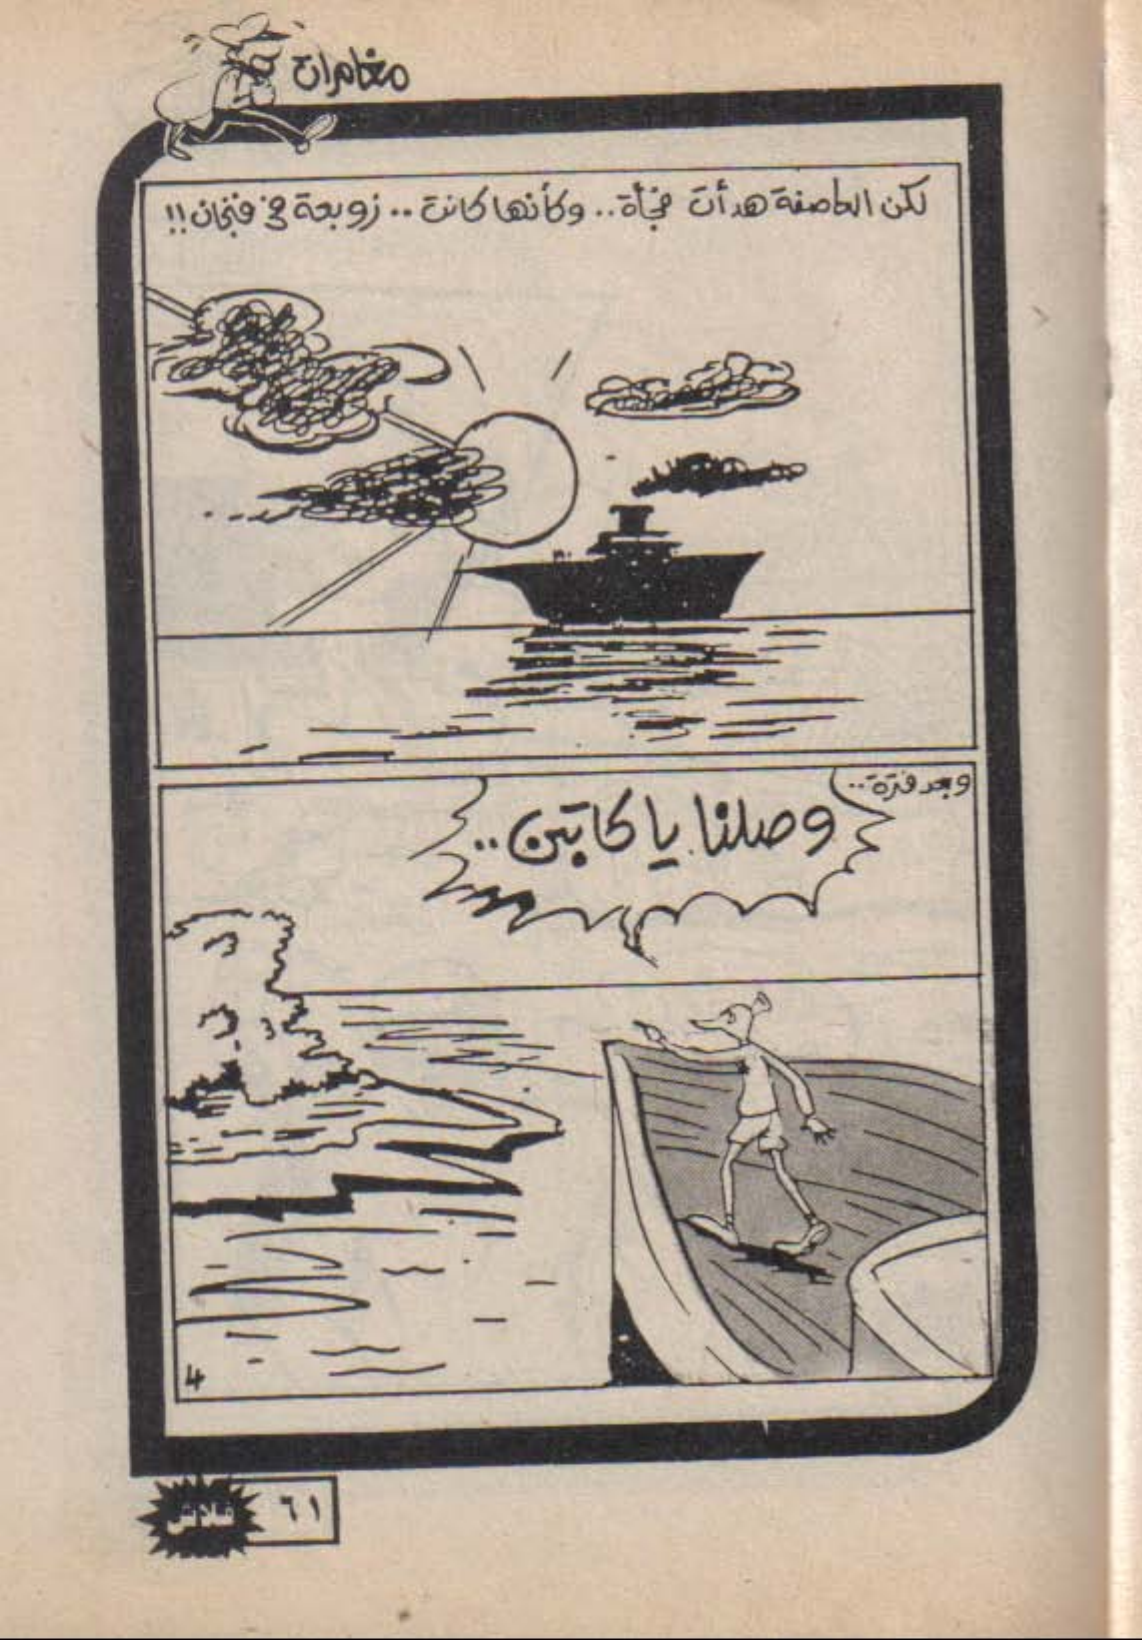 مغامرات
لكن العاصفة هدأت فجأة.. وكأنها كانت.. زوبعة في فنجان!!
وبعد فترة..
وصلنا يا كابتن..
4
٦١
فلاش